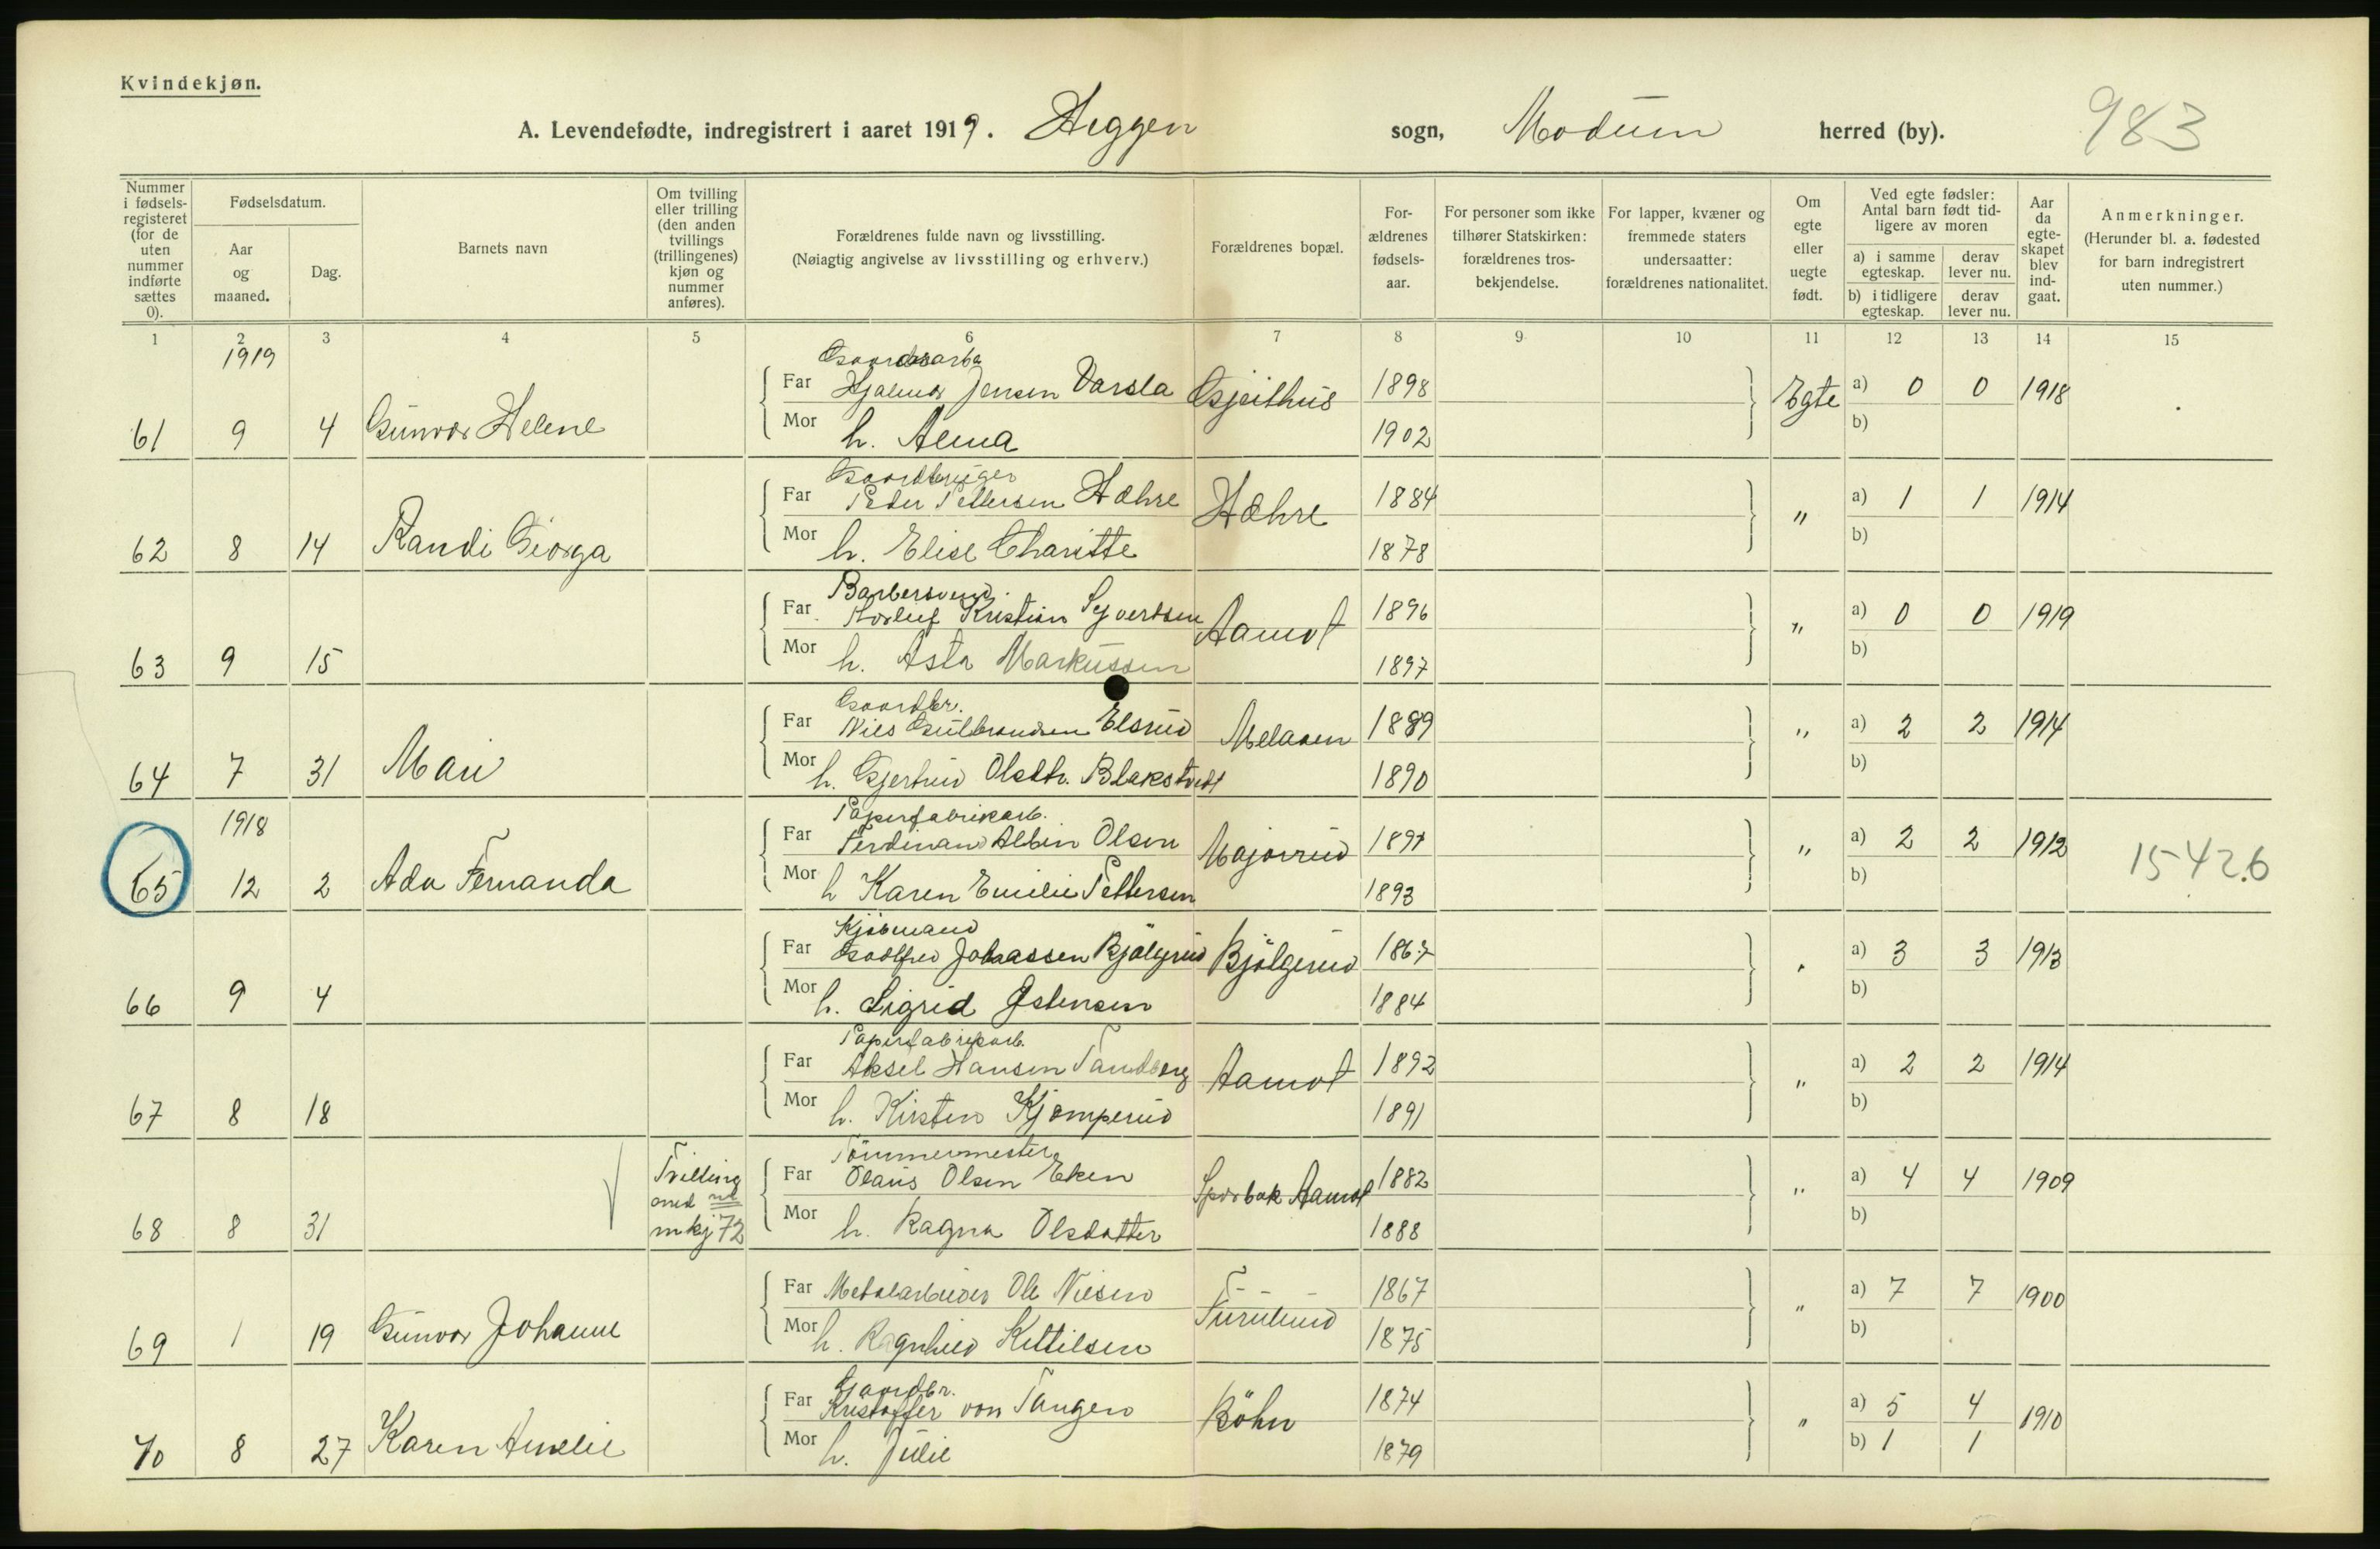 Kvindekjøn.
A. Levendefødte, indregistrert i aaret 1919. Heggen sogn, Modum herred (by). 983
Nummer i fødsels-registeret (for de uten nummer indførte sættes 0).
Fødselsdatum.
Aar og maaned.
Dag.
Barnets navn
Om tvilling eller trilling (den anden tvillings (trillingenes) kjøn og nummer anføres).
Forældrenes fulde navn og livsstilling.
(Nøiagtig angivelse av livsstilling og erhverv.)
Forældrenes bopæl.
For-ældrenes fødsels-aar.
For personer som ikke tilhører Statskirken: forældrenes tros-bekjendelse.
For lapper, kvæner og fremmede staters undersaatter: forældrenes nationalitet.
Om egte eller uegte født.
Ved egte fødsler: Antal barn født tid-ligere av moren
a) i samme egteskap.
derav lever nu.
b) i tidligere egteskap.
derav lever nu.
Aar da egte-skapet blev ind-gaat.
Anmerkninger.
(Herunder bl. a. fødested for barn indregistrert uten nummer.)
1 2 3 4 5 6 7 8 9 10 11 12 13 14 15
1919
Gaardsarb
Far Hjalmar Jensen Varsla Gjeithus 1898 Egte a) 0 0 1918
61 9 4 Gunvor Helene Mor h. Alma 1902 b)
Gaardbruger
Far Peder Pettersen Hæhre Hæhre 1884 " a) 1 1 1914
62 8 14 Randi Giorga Mor h. Elise Charitte 1878 b)
Barbersvend.
Far Thorleif Kristian Syvertsen Aamot 1896 " a) 0 0 1919
63 9 15 Mor h. Asta Markussen 1897 b)
Gaardbr.
Far Nils Gulbrandsen Elsrud Melaaen 1889 " a) 2 2 1914
64 7 31 Mari Mor h. Gjertrud Olsdtr. Blakstvedt 1890 b)
1918 Papirfabrikarb.
Far Ferdinand Albin Olsen Majorrud 1891 " a) 2 2 1912 15426
65 12 2 Ada Fernanda Mor h Karen Emilie Pettersen 1893 b)
Kjøbmand
Far Godtfred Johanssen Bjölgerud Bjölgerud 1867 " a) 3 3 1913
66 9 4 Mor h. Sigrid Jstensen 1884 b)
Papirfabrikarb.
Far Aksel Hansen Tandberg Aamot 1892 " a) 2 2 1914
67 8 18 Mor h. Kirsten Kjomperud 1891 b)
Tvilling med nr mkj 72
Tömmermester
Far Olaus Olsen Eken Aamot 1882 " a) 4 4 1909
68 8 31 Mor h. Ragna Olsdatter 1888 b)
Far Metalarbeider Ole Nilsen Furulund 1867 " a) 7 7 1900
69 1 19 Gunvor Johanne Mor h. Ragnhild Kittilsen 1875 b)
Gaardbr.
Far Kristoffer von Tangen Böhn 1874 " a) 5 4 1910
70 8 27 Karen Amelie Mor h. Julie 1879 b) 1 1